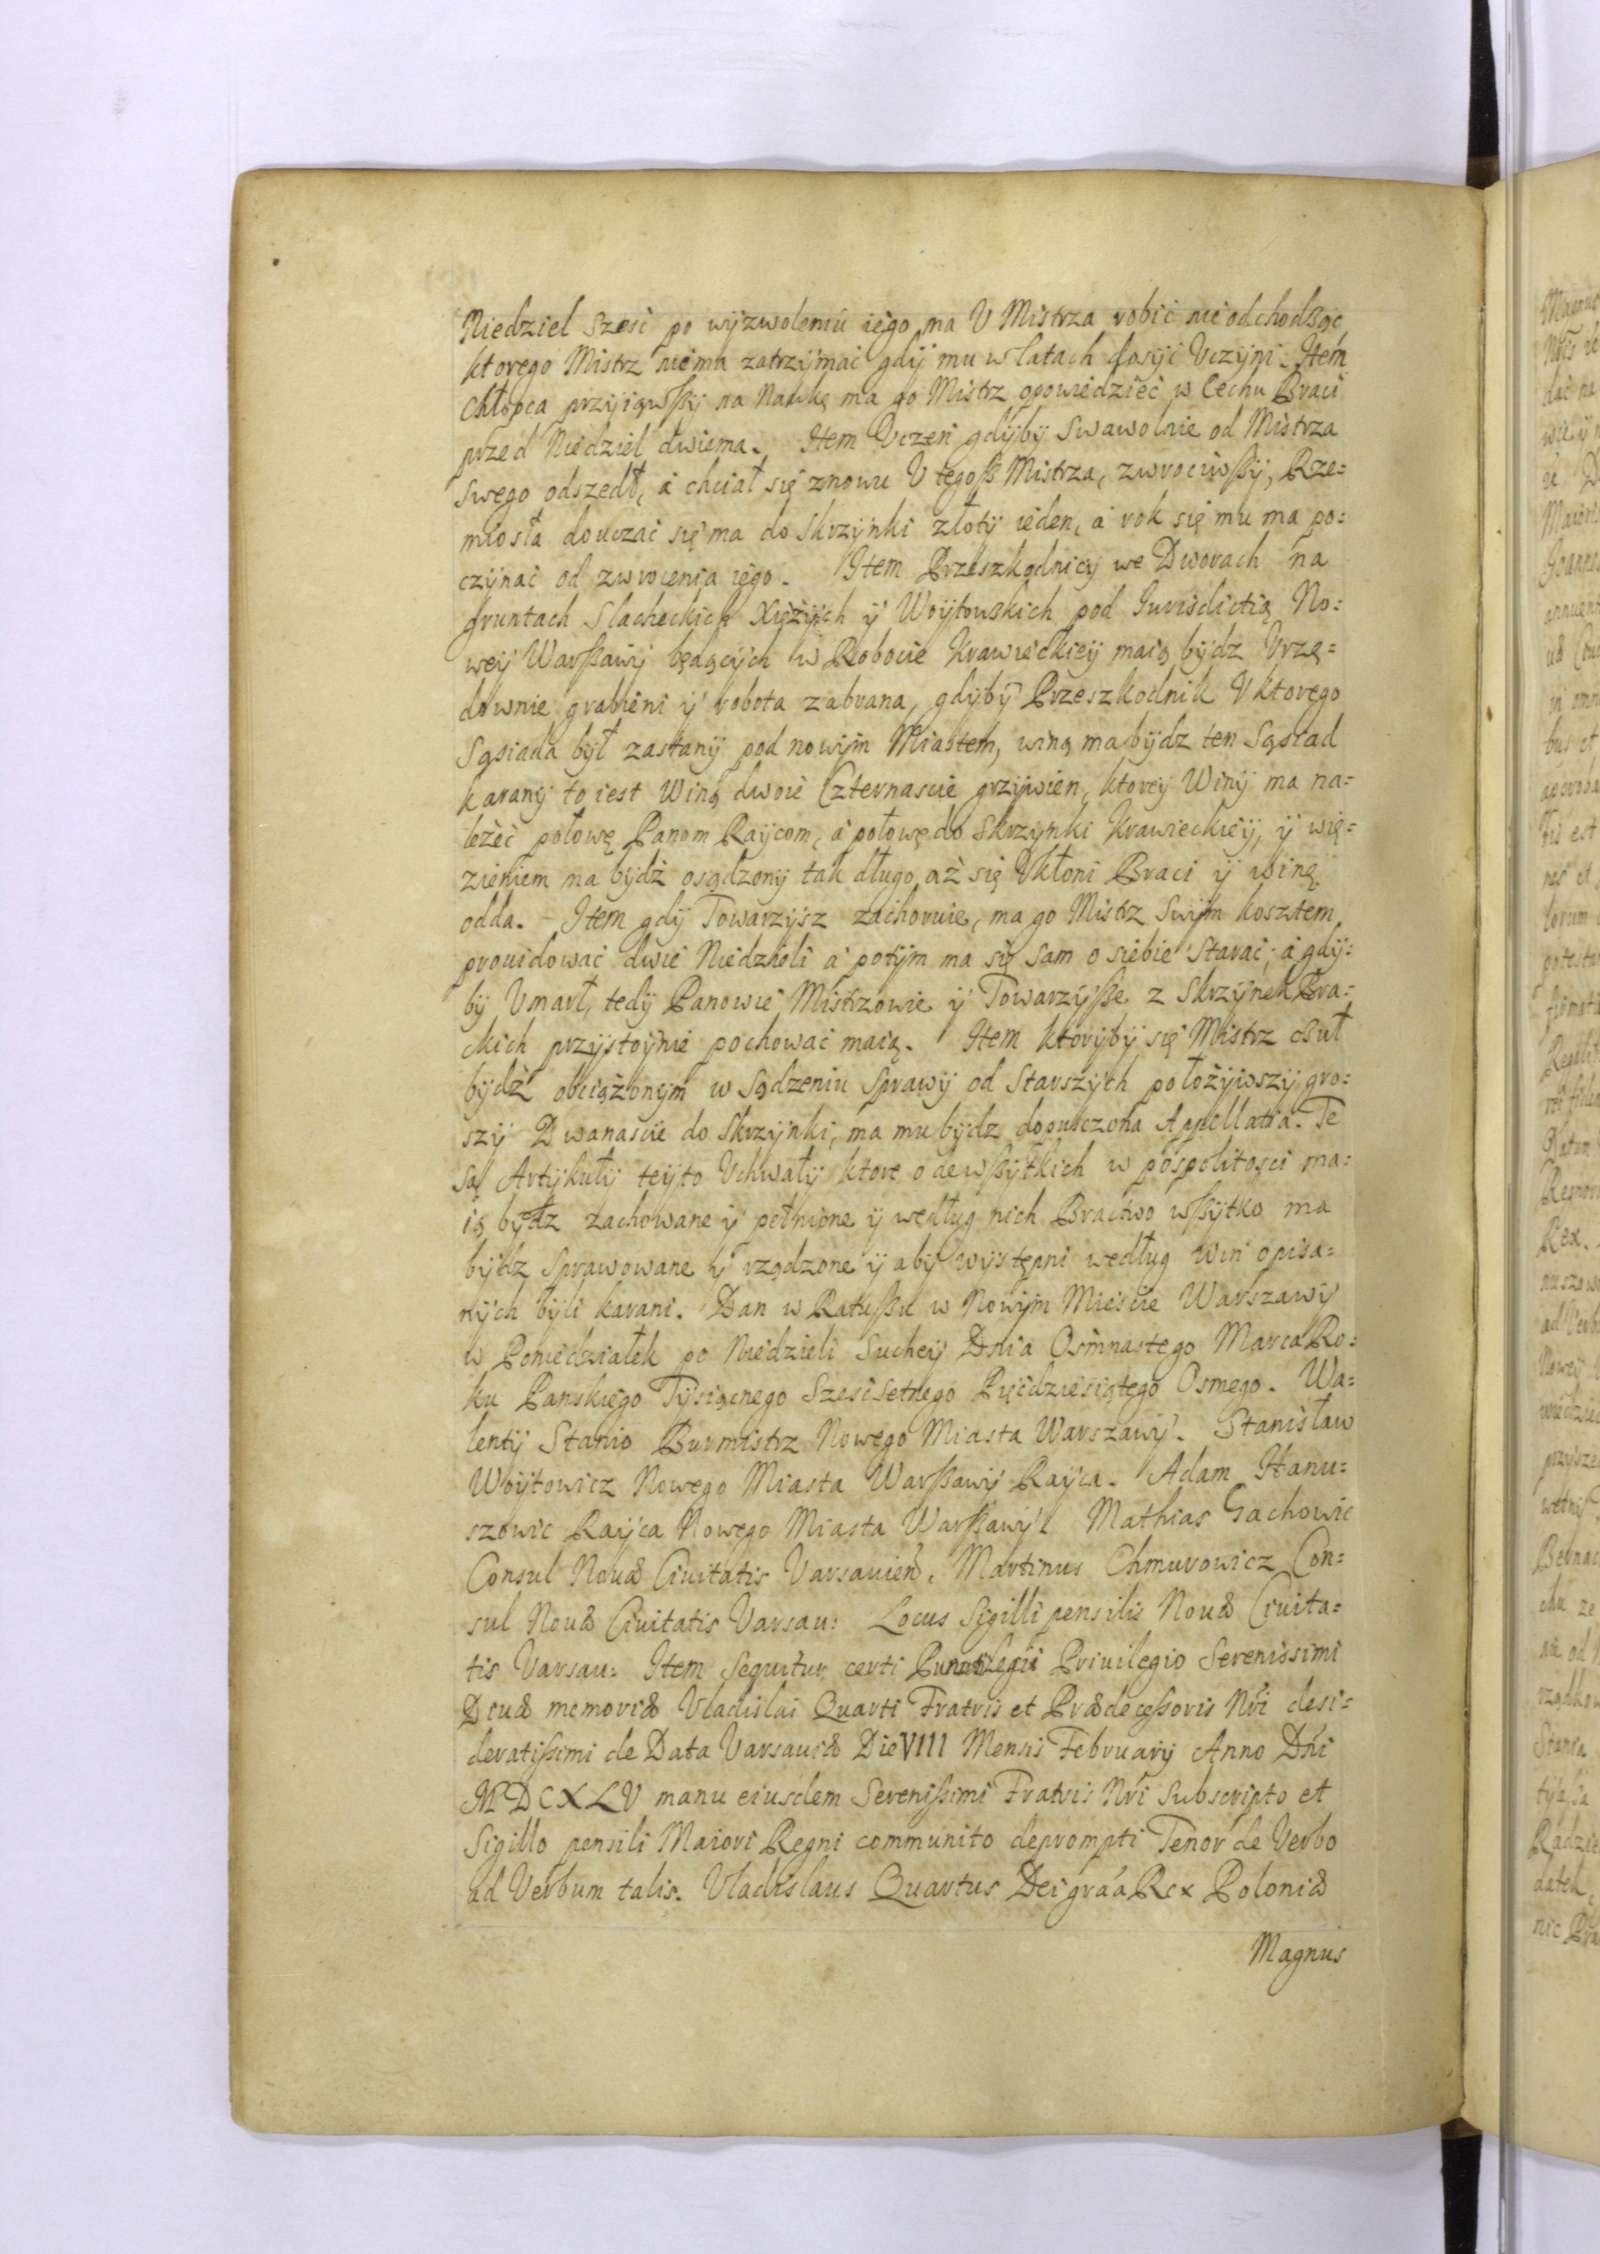 Niedziel szesc po wyzwoleniu iego ma V Mistrza robić nieodchodząc
ktorego Mistrz niema zatrzymać gdy mu w latach dosyć Vczyni. Item
Chłopca przyiąwszy na Naukę ma go Mistrz opowiedzieć w Cechu Braci
przed Niedziel dwiema. Item Vczeń gdyby Swawolnie od Mistrza
Swego odszedł, a chciał się znowu V tegoß Mistrza, zwrociwßy, Rze=
miosła douczać się ma do Skrzynki złoty ieden, a rok się mu ma po=
czynać od zwrocenia iego. Item Przeszkodnicy we Dworach na
gruntach Slacheckich Xiężych y Woytowskich pod Jurisdictią No=
wey Warßawy będących w Robocie Krawieckiey maią bydz Vrzę=
downie grabieni y robota zabrana, gdyby Przeszkodnik V ktorego
Sąsiada był zastany pod nowym Miastem, winą ma bydz ten Sąsiad
karany to iest Winą dwoie Czternascie grzywien, ktorey Winy ma na=
leżeć połowę Panom Raycom, a połowę do Skrzynki Krawieckiey, y wię=
zieniem ma bydź osądzony tak długo aż się Vkłoni Braci y winę
odda. - Item gdy Towarzysz zachoruie, ma go Mistrz Swym kosztem
prouidować dwie Niedzieli a potym ma się sam o siebie Starać; a gdy=
by Vmarł, tedy Panowie Mistrzowie y Towarzyße z Skrzynek Bra=
ckich przystoynie pochować maią. Item ktoryby się Mistrz czuł
bydź obciążonym w Sądzeniu Sprawy od Starszych położywszy gro=
szy Dwanascie do Skrzynki, ma mu bydz dopusczona Apellatia. Te
są Artykuły teyto Vchwały ktore odewßytkich w pospolitosci ma=
ią bydz zachowane y pełnione y według nich Bractwo wßytko ma
bydz Sprawowane y rządzone y aby występni według win opisa=
nych byli karani. Dan w Ratußu w Nowym Mieście Warszawy
w Poniedziałek po Niedzieli Suchey Dnia Osmnastego Marca Ro=
ku Panskiego Tysiącnego Szescsetnego Pięćdziesiątego Osmego. Wa=
lenty Stanio Burmistrz Nowego Miasta Warszawy. Stanisław
Woytowicz Nowego Miasta Warßawy Rayca. Adam Hanu=
szowic Rayca Nowego Miasta Warßawy. Mathias Gachowic
Consul Nouæ Ciuitatis Varsauien. Martinus Chmurowicz Con=
sul Nouæ Ciuitatis Varsau: Locus Sigilli pensilis Nouæ Ciuita=
tis Varsau: Item Sequitur certi Priuilegio Serenissimi
Diuæ memoriæ Vladislai Quarti Fratris et Prædecessoris Nri desi=
deratißimi de Data Varsauiæ Die VIII Mensis February Anno Dni
MDCXLV manu eiusdem Serenißimi Fratris Nri Subscripto et
Sigillo pensili Maiori Regni communito deprompti Tenor de Verbo
ad Verbum talis. Vladislaus Quartus Dei gra'a Rex Poloniæ
Magnus